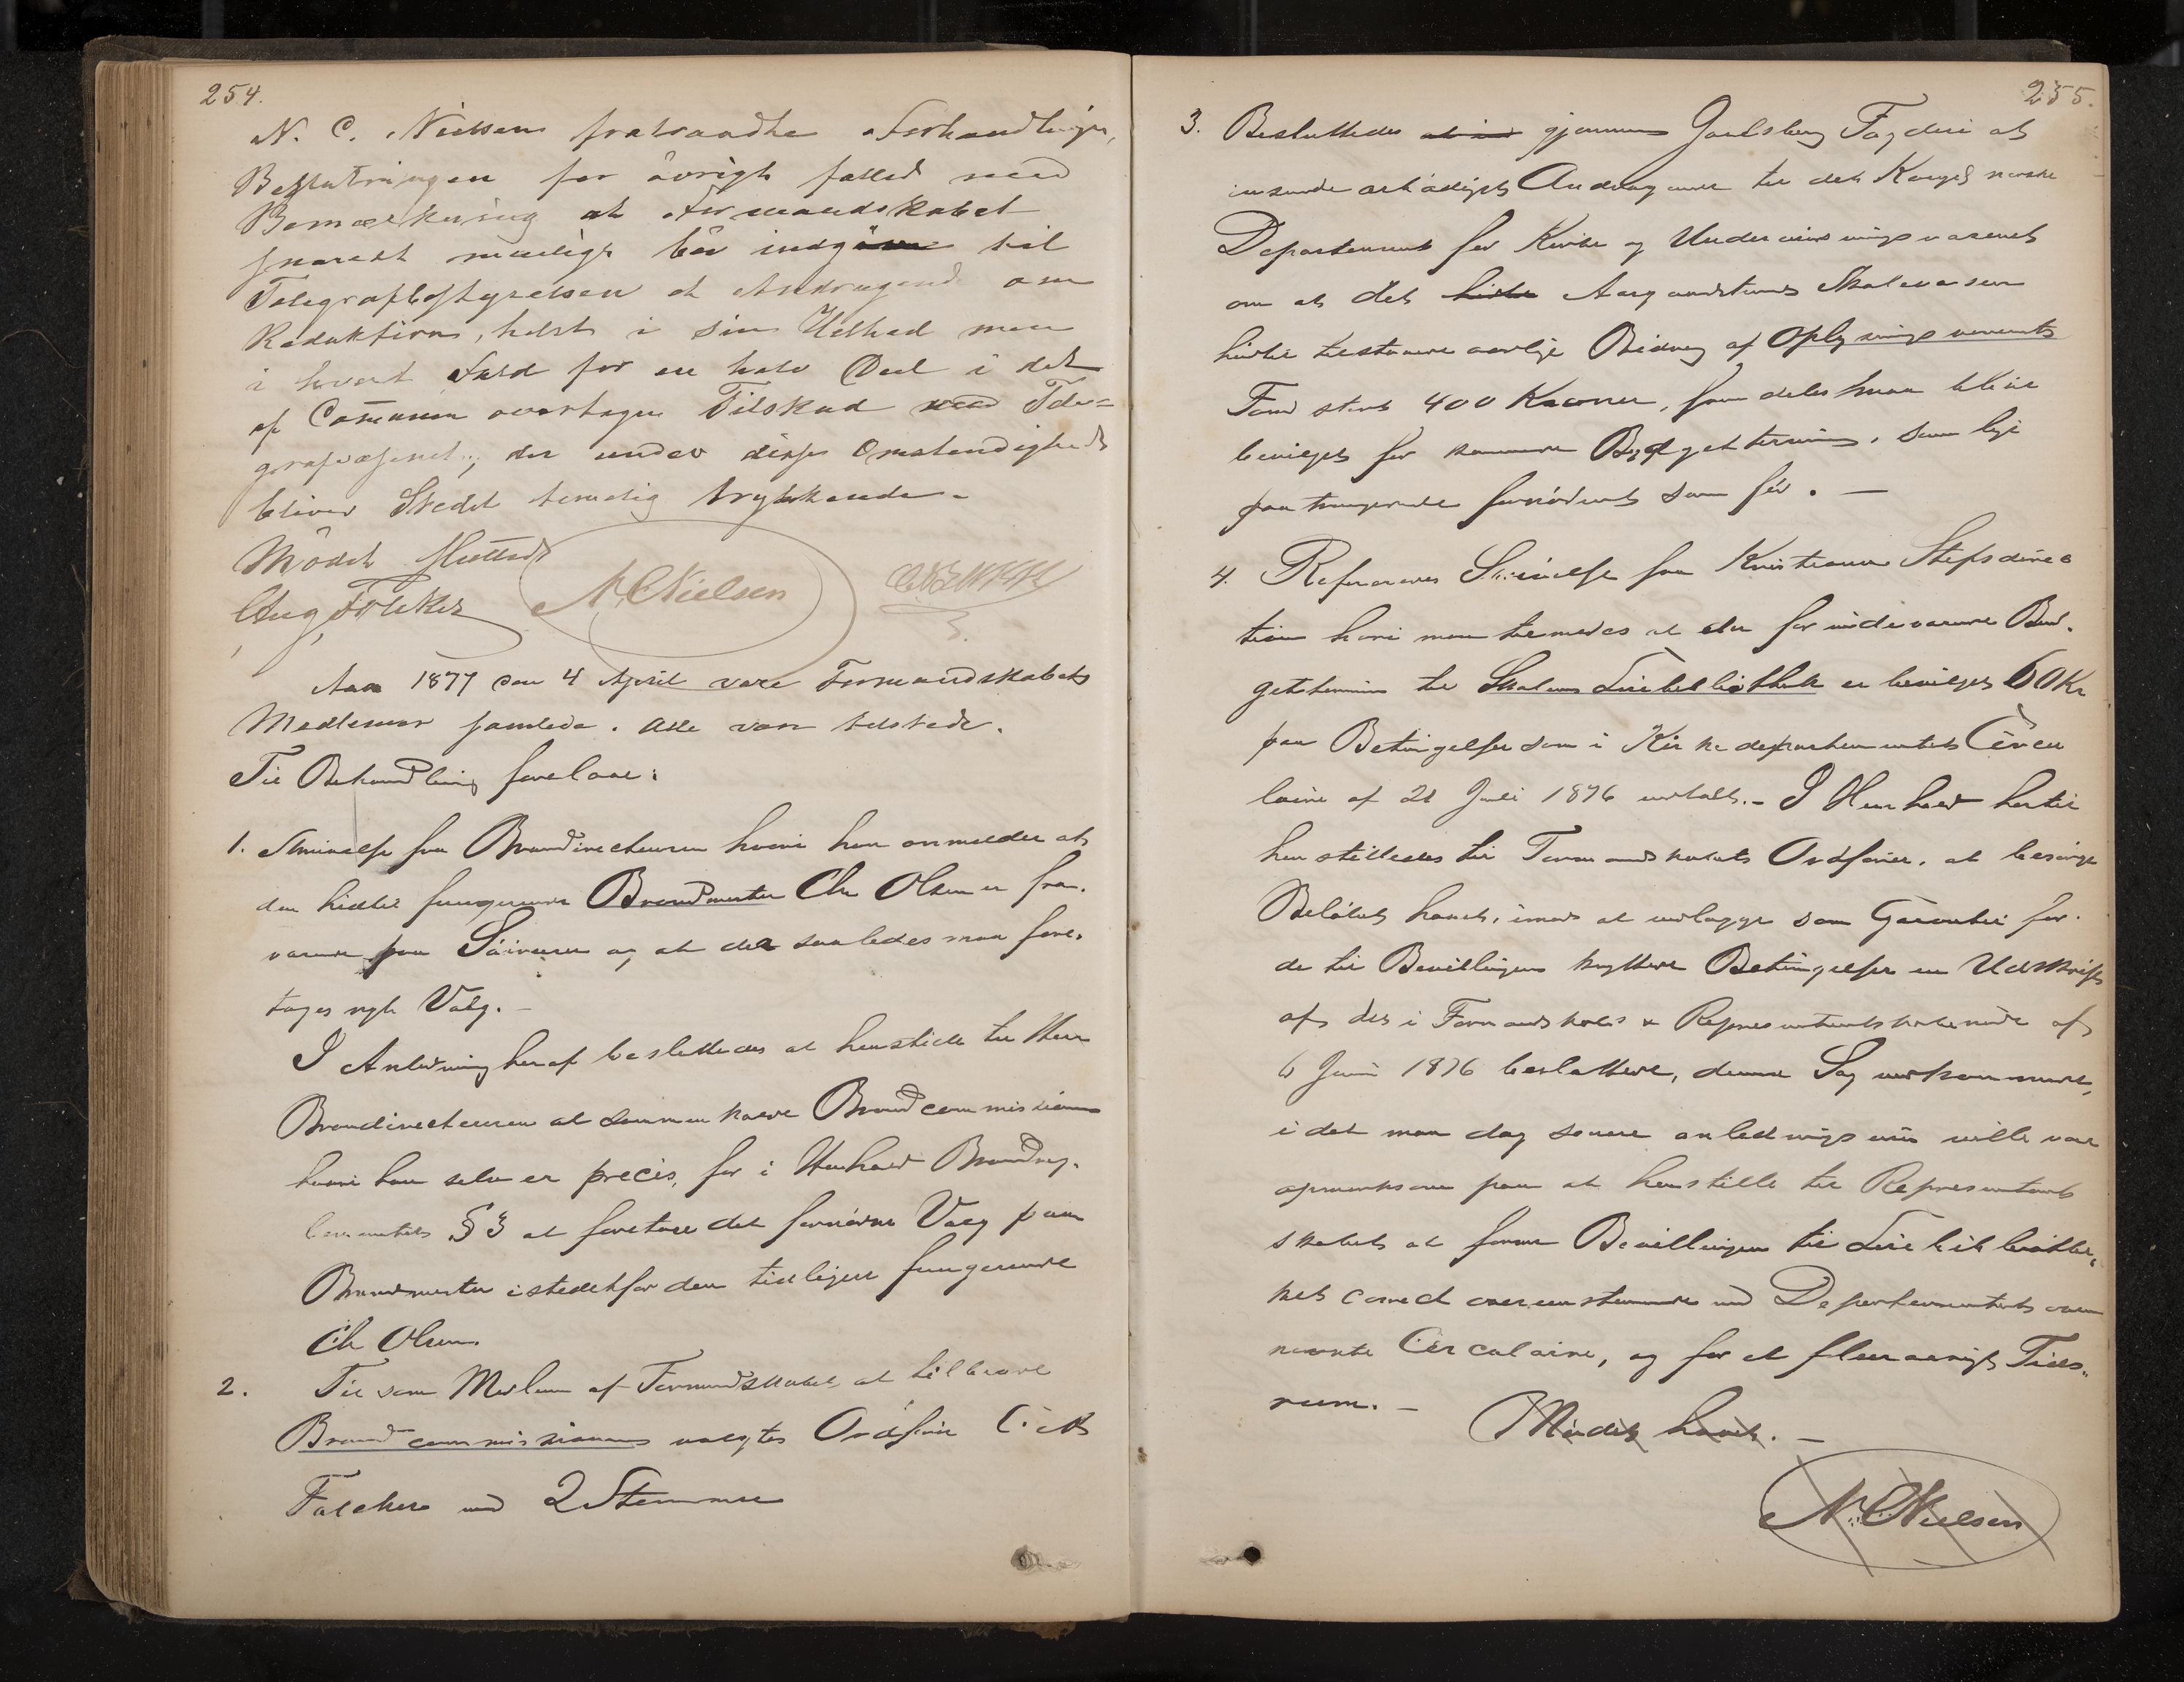 254.
N. C. Nielsen fratraadte Forhandlingen,
Beslutningen for övrigt fatted med
Bemærkning at Formandskabet
snarest muligt bör indgaa til
Telegrafbestyrelsen et Andragende om
Reduktion, helst i sin Helhed men
i hvert Fald for en halv Deel i det
af Communen overtagne Tilskud med Tele-
grafvæsenet, der under disse Omstendigheder
bliver Stedet temelig trykkende.
Mödet sluttedt
Aug. Folcker N. C. Nielsen
Aar 1877 den 4 April vare Formandskabets
Medlemer samlede. Alle vare tilstede.
Til Behandling forelaae:
1. Skrivelse fra Branddirecteuren hvori han anmelder at
den hidtil fungerende Brandmester Chr Olsen er fra-
værende paa Söreisen og at der saaledes maa fore-
tages nyt Valg. -
I Anledning heraf besluttedes at henstille til Herr
Branddirecteuren at sammenkalde Brandcommissionen
hvori han selv er præces, for i Henhold Brandreg-
lementets § 3 at foretage det fornödne Valg paa
Brandmester istedetfor den tidligere fungerende
Ch Olsen.
2. Til som Medlem af Formandskabet at tiltræde
Brandcommissionen valgtes Ordförer
Falcker med 2 Stemmer
255.
3. Besluttedes gjennem Jarlsberg Fogderi at
insende ærbödigst Andragende til det Kongel norske
Departement for Kirke og Underviisningsvæsenet
om at det Aasgaardstrands Skolevæsen
hidtil tilstaaede aarlige Bidrag af Oplysningsvæsenets
Fond stort 400 Kroner, fremdeles maa blive
bevilget for kommende Budgettermin, som lige
paatrængende fornödent som för. -
4. Refereredes Skrivelse fra Kristiania Stiftsdirec
tion hvori man tilmeldes at der for indeværende Bud-
gettermin til Skolens Læsebibliothek er bevilget 60 Kr
paa Betingelser som i Kirkedepartementets Circu
laire af 21 Juli 1876 omtalt. - I Henhold hertil
henstilledes til Formandskabets Ordförer, at besörge
Belöbet hævet, imod at vedlægge som Garantie for
de til Bevillingen knyttede Betingelser en Udskrift
af det i Formandskabs & Representantskabsmöde af
6 Juni 1876 besluttede, denne Sag vedkommende,
i det man dog senere anledningsviis vilde være
opmerksom paa at henstille til Representant
skabet at faae Bevillingen til Læsebibliothe-
ket correct overeenstemmende med Departementets oven
nævnte Circulaire, og for et fleeraarigt Tids-
rum. -
Mödet hævet. -
N. C. Nielsen